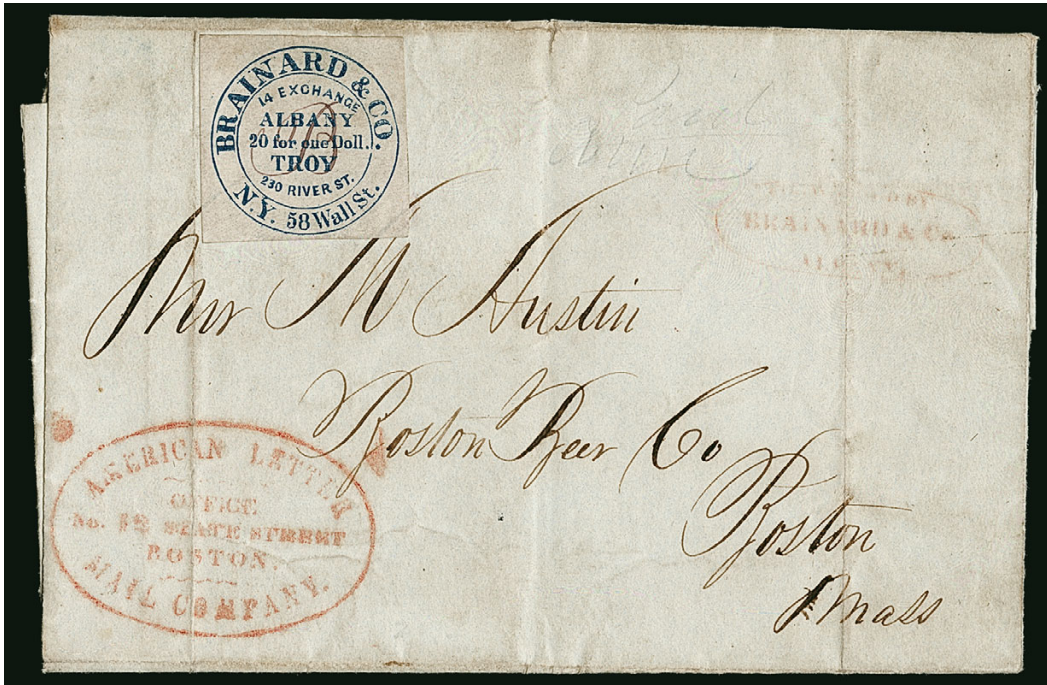 BRAINARD & CO.
14 EXCHANGE
ALBANY
20 for one Doll.
TROY
230 RIVER ST.
N.Y. 58 Wall St.
B
BRAINARD & Co.
ALBANY
Mr M Austin
Boston Beer Co
Boston
Mass
AMERICAN LETTER
OFFICE
No. 12 STATE STREET
BOSTON.
MAIL COMPANY.